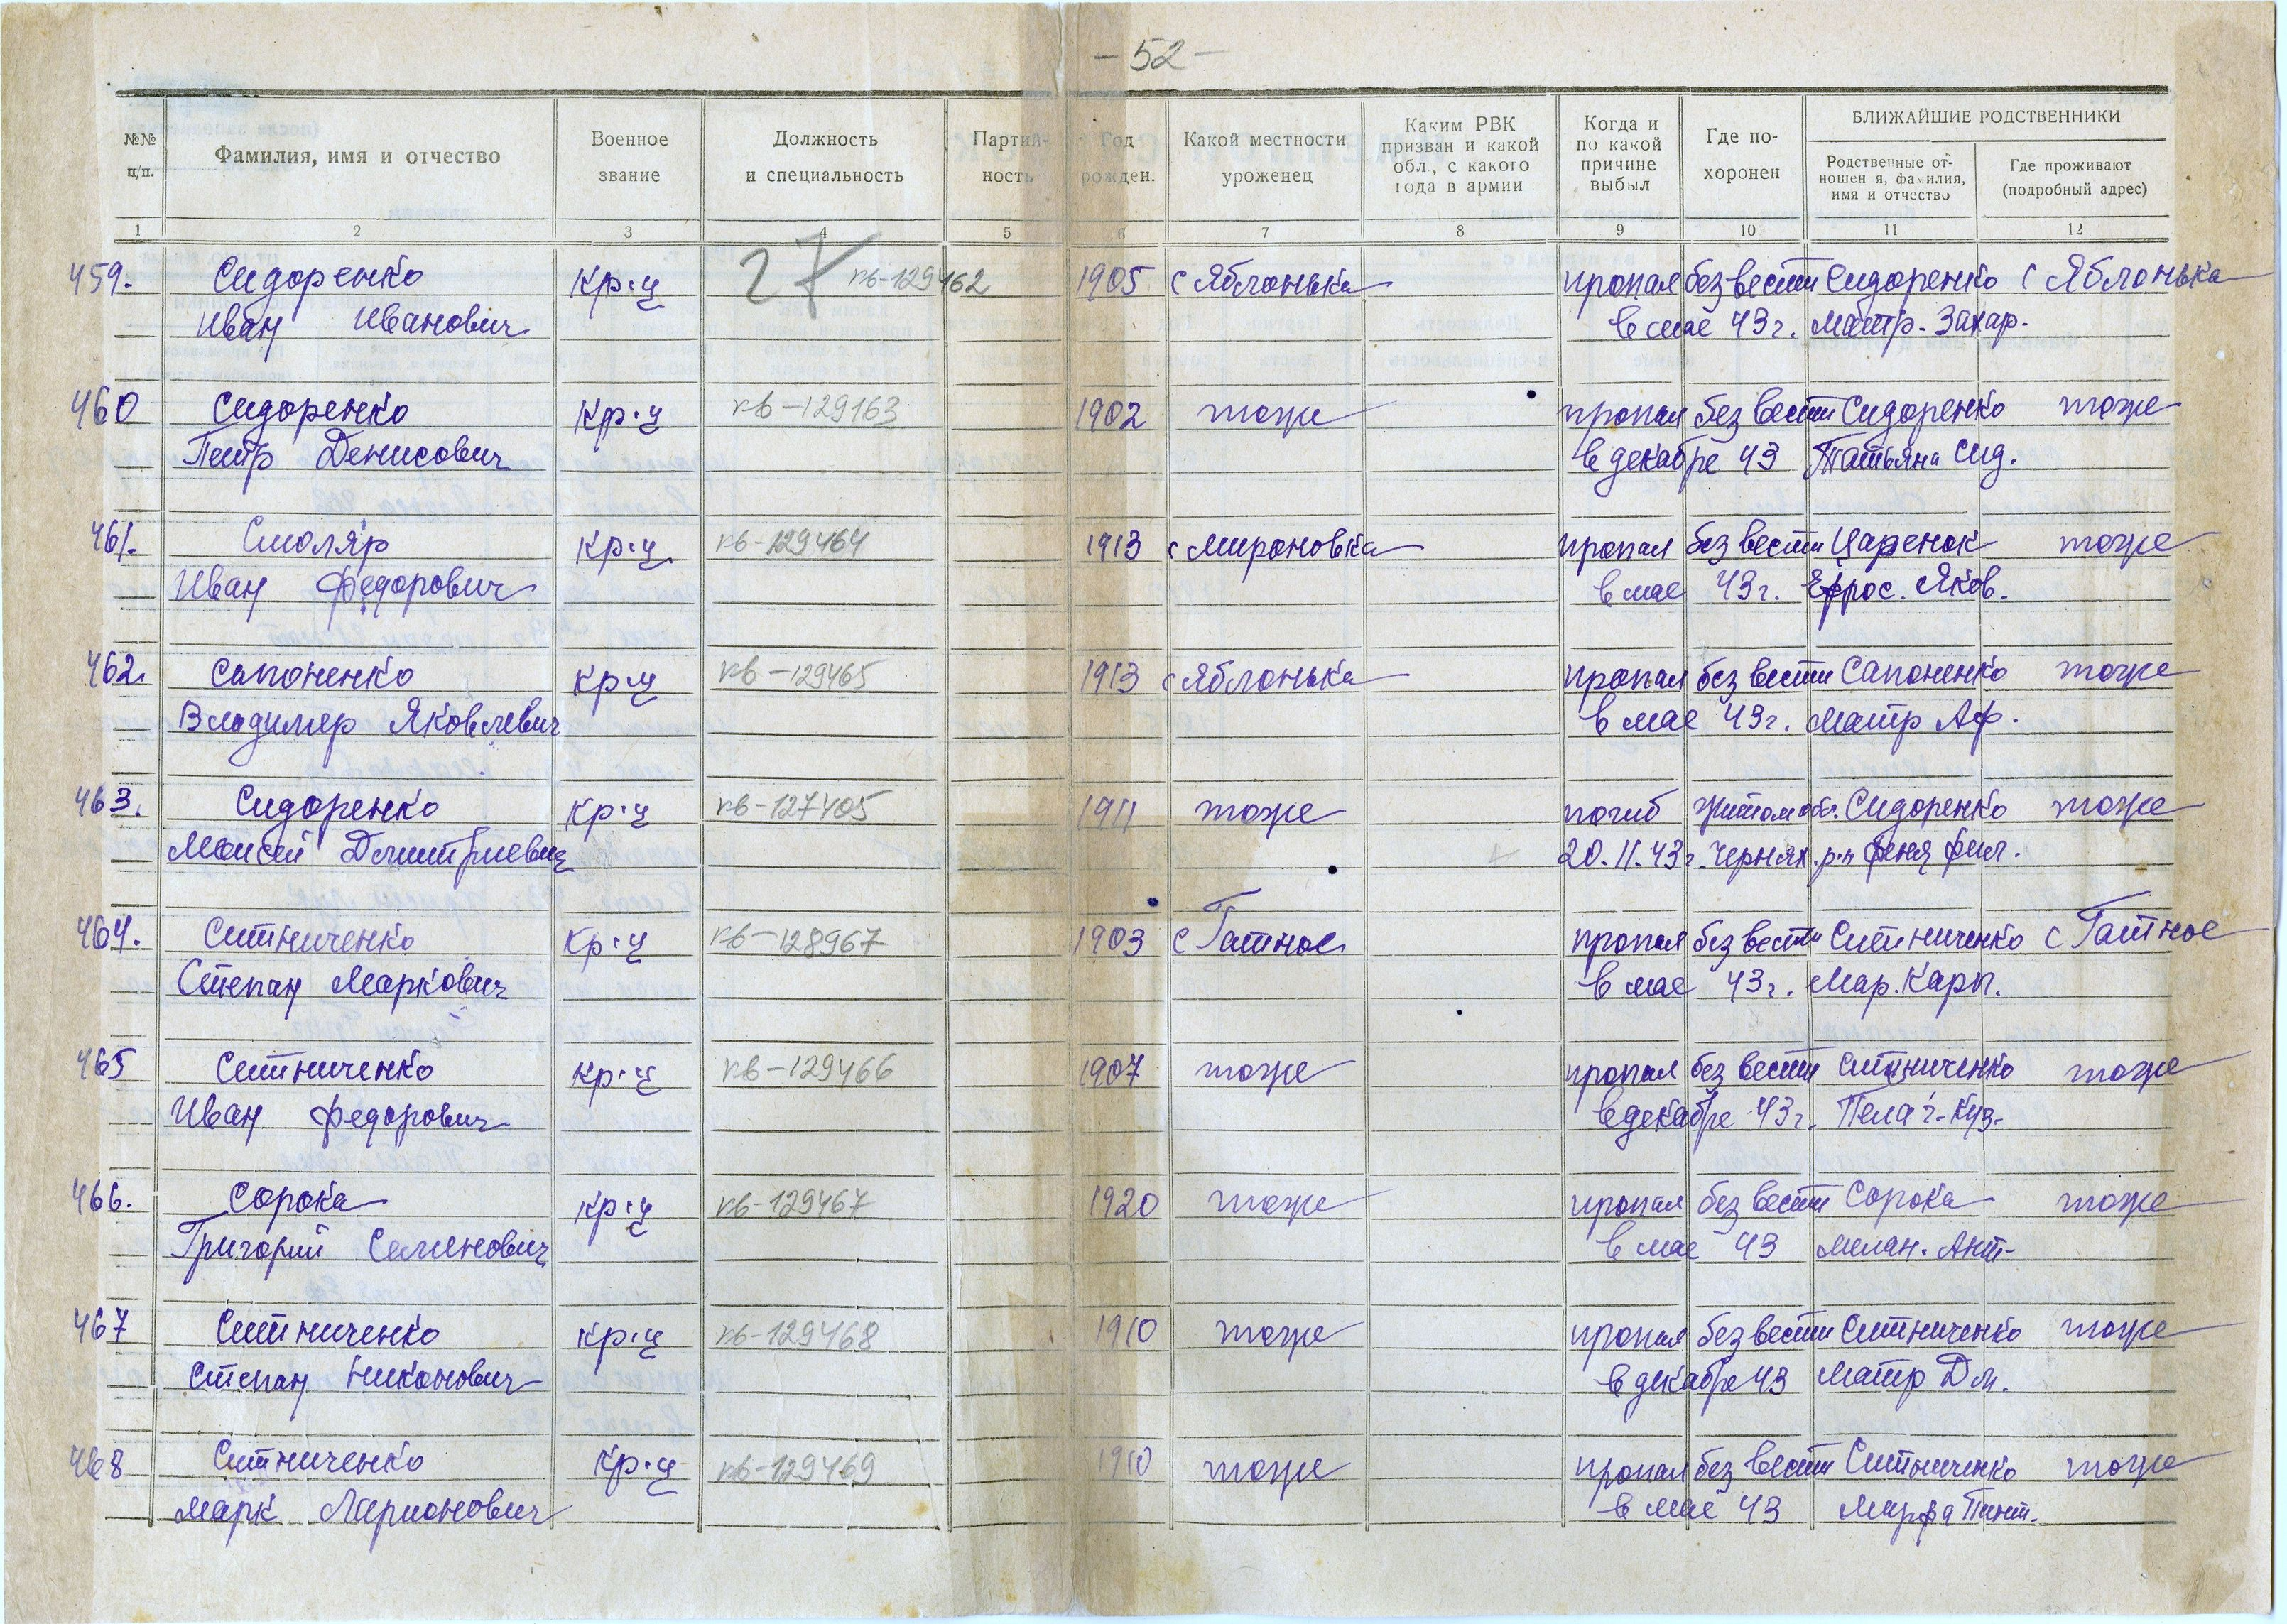 - 52 -
№№ п/п. Фамилия, имя и отчество Военное звание Должность и специальность Партий-ность Год рожден. Какой местности уроженец Каким РВК призван и какой обл., с какого года в армии Когда и по какой причине выбыл Где по-хоронен БЛИЖАЙШИЕ РОДСТВЕННИКИ
Родственные от-ношен я, фамилия, имя и отчество Где проживают (подробный адрес)
1 2 3 4 5 6 7 8 9 10 11 12
27
459. Сидоренко кр-ц кв-129462 1905 с Яблонька пропал без вести Сидоренко с Яблонька
Иван Иванович в мае 43 г. Матр. Захар.
460 Сидоренко кр-ц кв-129163 1902 тоже пропал без вести Сидоренко тоже
Петр Денисович в декабре 43 Татьяна Сид.
461. Смоляр кр-ц кв-129464 1913 с Мироновка пропал без вести Царенок тоже
Иван Федорович в мае 43 г. Ефрос. Яков.
462. Сапоненко кр-ц кв-129465 1913 с Яблонька пропал без вести Сапоненко тоже
Владимир Яковлевич в мае 43 г. Матр Аф.
463. Сидоренко кр-ц кв-127405 1911 тоже погиб Житом обл. Сидоренко тоже
Моисей Дмитриевич 20.11.43 г. Чернях. р-н Феня Фил.
464. Ситниченко кр-ц кв-128967 1903 с Гатное пропал без вести Ситниченко с Гатное
Степан Маркович в мае 43 г. Мар. Карп.
465 Ситниченко кр-ц кв-129466 1907 тоже пропал без вести Ситниченко тоже
Иван Федорович в декабре 43 г. Пелаг. Куз.
466. Сорока кр-ц кв-129467 1920 тоже пропал без вести Сорока тоже
Григорий Семенович в мае 43 Мелан. Ант.
467 Ситниченко кр-ц кв-129468 1910 тоже пропал без вести Ситниченко тоже
Степан Никонович в декабре 43 Матр Дм.
468 Ситниченко кр-ц кв-129469 1910 тоже пропал без вести Ситниченко тоже
Марк Ларионович в мае 43 Марфа